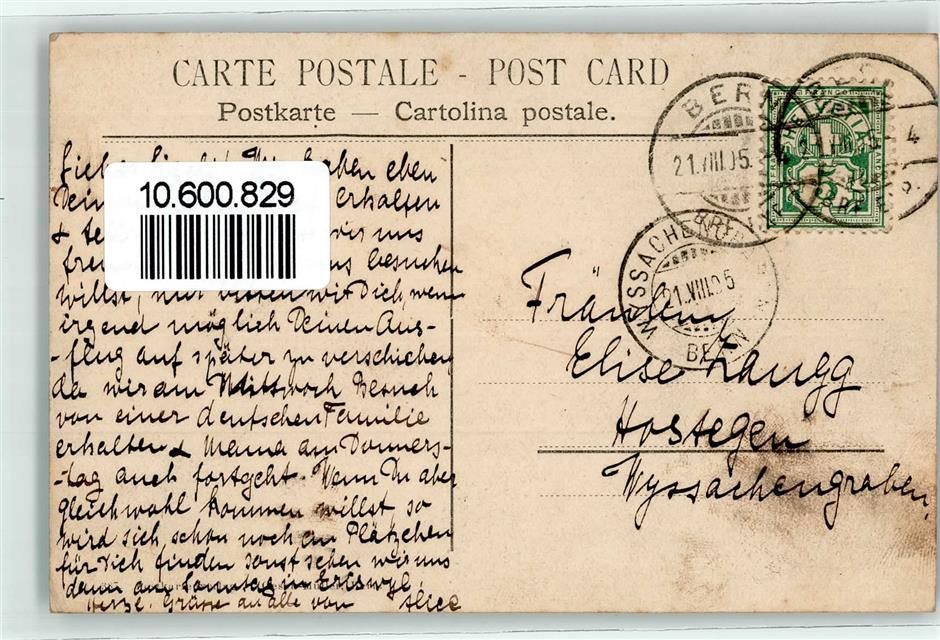 CARTE POSTALE - POST CARD
Postkarte — Cartolina postale.
BERN
21.VIII.05.
4
HELVETIA
5
WYSSACHENGRABEN
21.VIII.05
BERN
10.600.829
haben eben
Dein erhalten
& wir uns
uns besuchen
willst, nur bitten wir Dich, wenn
irgend möglich Deinen Aus-
-flug auf später zu verschieben
da wir am Mittwoch Besuch
von einer deutschen Familie
erhalten & Mama am Donners-
-tag auch fortgeht. Wenn Du aber
gleichwohl kommen willst so
wird sich schon noch ein Plätzchen
für Dich finden sonst sehen wir uns
dann am Sonntag in Eriswyl.
Herzl. Grüsse an alle von Alice
Fräulein
Elise Zaugg
Hostegen
Wyssachengraben.